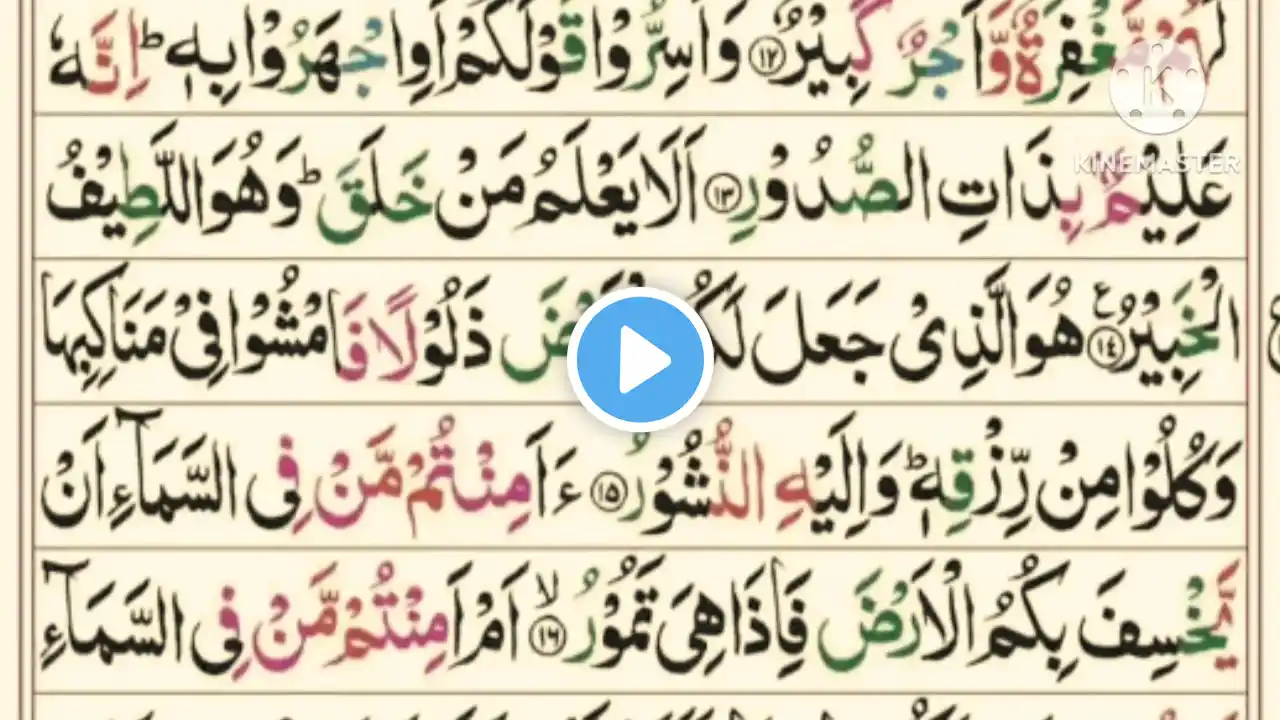 لَهُمْ مَّغْفِرَةٌ وَّاَجْرٌ كَبِيْرٌ ﴿۱۲﴾ وَاَسِرُّوْا قَوْلَكُمْ اَوِاجْهَرُوْا بِهٖ ؕ اِنَّهٗ
عَلِيْمٌۢ بِذَاتِ الصُّدُوْرِ ﴿۱۳﴾ اَلَا يَعْلَمُ مَنْ خَلَقَ ؕ وَهُوَ اللَّطِيْفُ
الْخَبِيْرُ ﴿۱٤﴾ ع هُوَ الَّذِىْ جَعَلَ ذَلُوْلًا فَامْشُوْا فِىْ مَنَاكِبِهَا
وَكُلُوْا مِنْ رِّزْقِهٖ ؕ وَاِلَيْهِ النُّشُوْرُ ﴿۱۵﴾ ءَاَمِنْتُمْ مَّنْ فِى السَّمَآءِ اَنْ
يَّخْسِفَ بِكُمُ الْاَرْضَ فَاِذَا هِىَ تَمُوْرُ ۙ ﴿۱۶﴾ اَمْ اَمِنْتُمْ مَّنْ فِى السَّمَآءِ
KINEMASTER